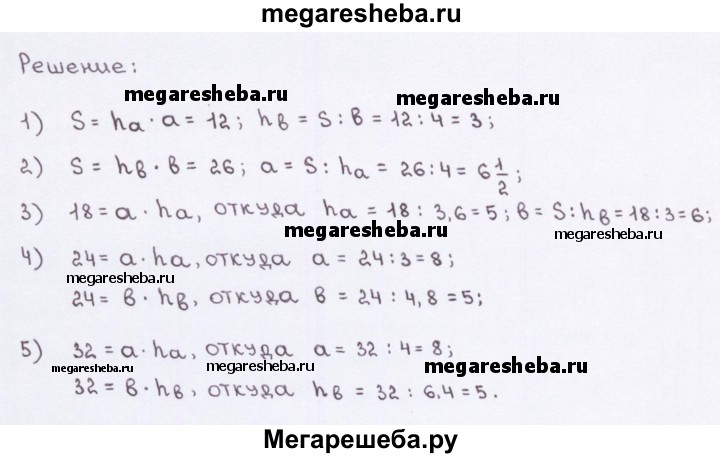 megaresheba.ru
Решение:
megaresheba.ru
megaresheba.ru
1) S = ha · a = 12; hв = S : в = 12 : 4 = 3;
2) S = hв · в = 26; a = S : ha = 26 : 4 = 6 1/2;
3) 18 = a · ha, откуда ha = 18 : 3,6 = 5; в = S : hв = 18 : 3 = 6;
megaresheba.ru
megaresheba.ru
4) 24 = a · ha, откуда a = 24 : 3 = 8;
megaresheba.ru
24 = в · hв, откуда в = 24 : 4,8 = 5;
5) 32 = a · ha, откуда a = 32 : 4 = 8;
megaresheba.ru
megaresheba.ru
megaresheba.ru
32 = в · hв, откуда hв = 32 : 6,4 = 5.
Мегарешеба.ру